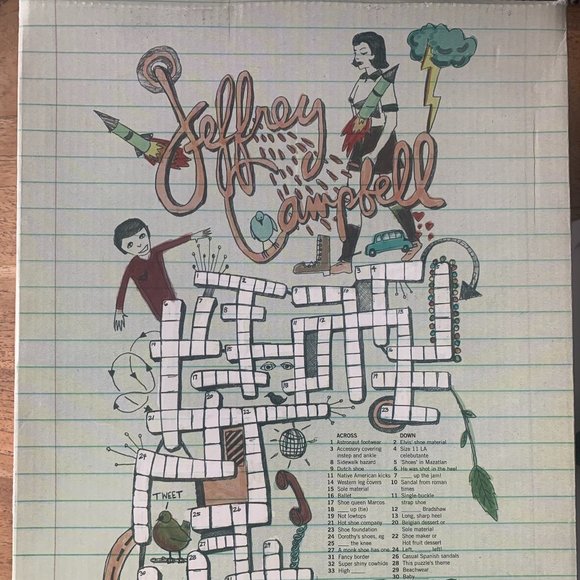 Jeffrey
Campbell
TWEET
ACROSS
1 Astronaut footwear
3 Accessory covering
instep and ankle
8 Sidewalk hazard
9 Dutch shoe
11 Native American kicks
14 Western leg covers
15 Sole material
16 Ballet ____
17 Shoe queen Marcos
18 ____ up (tie)
19 Not lowtops
21 Hot shoe company
23 Shoe foundation
24 Dorothy's shoes, eg
25 ____ the knee
27 A monk shoe has one
31 Fancy border
32 Super shiny cowhide
33 High ____
DOWN
2 Elvis' shoe material
4 Size 11 LA
celebutante
5 'Shoes' in Mazatlan
6 He was shot in the heel
7 ____ up the jam!
10 Sandal from roman
times
11 Single-buckle
strap shoe
12 ____ Bradshaw
13 Long, sharp heel
20 Belgian dessert or
Sole material
22 Shoe maker or
Hot fruit dessert
24 Left, ____, left!
26 Casual Spanish sandals
28 This puzzle's theme
29 Beachwear
30 Baby